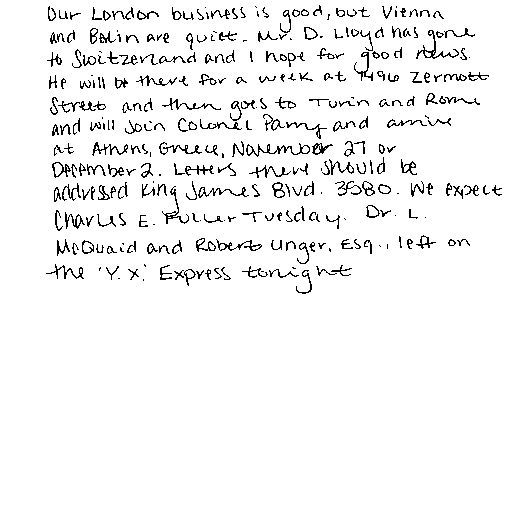 Our London business is good, but Vienna
and Berlin are quiet. Mr. D. Lloyd has gone
to Switzerland and I hope for good news.
He will be there for a week at 1496 Zermott
Street and then goes to Turin and Rome
and will join Colonel Parry and arrive
at Athens, Greece, November 27 or
December 2. Letters there should be
addressed King James Blvd. 3580. We expect
Charles E. Fuller Tuesday. Dr. L.
McQuaid and Robert Unger, Esq., left on
the 'Y.X.' Express tonight